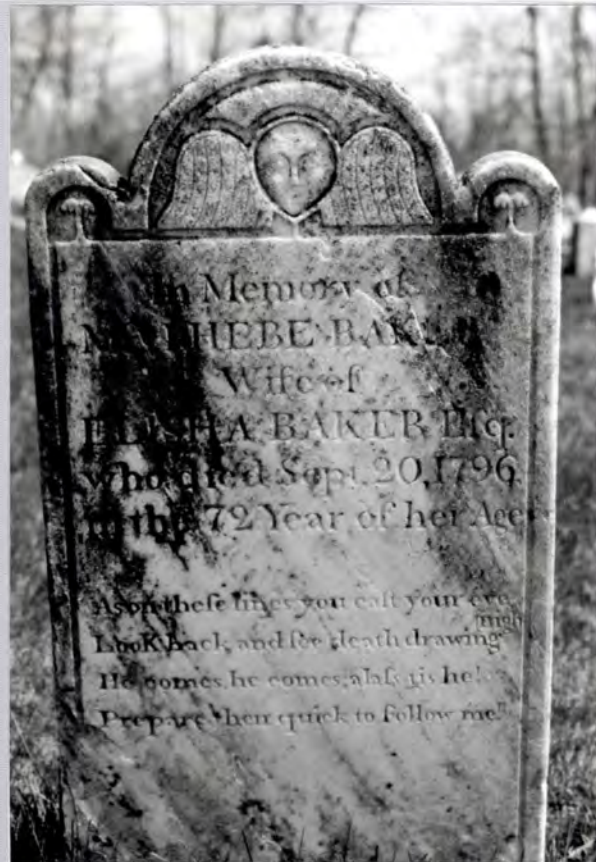 In Memory of
Mrs PHEBE BAKER
Wife of
ELISHA BAKER Eſq.
who died Sept. 20, 1796.
in the 72 Year of her Age
As on theſe lines you caſt your eye,
Look back and ſee death drawing nigh
He comes, he comes, alaſs, tis he!
Prepare then quick to follow me."